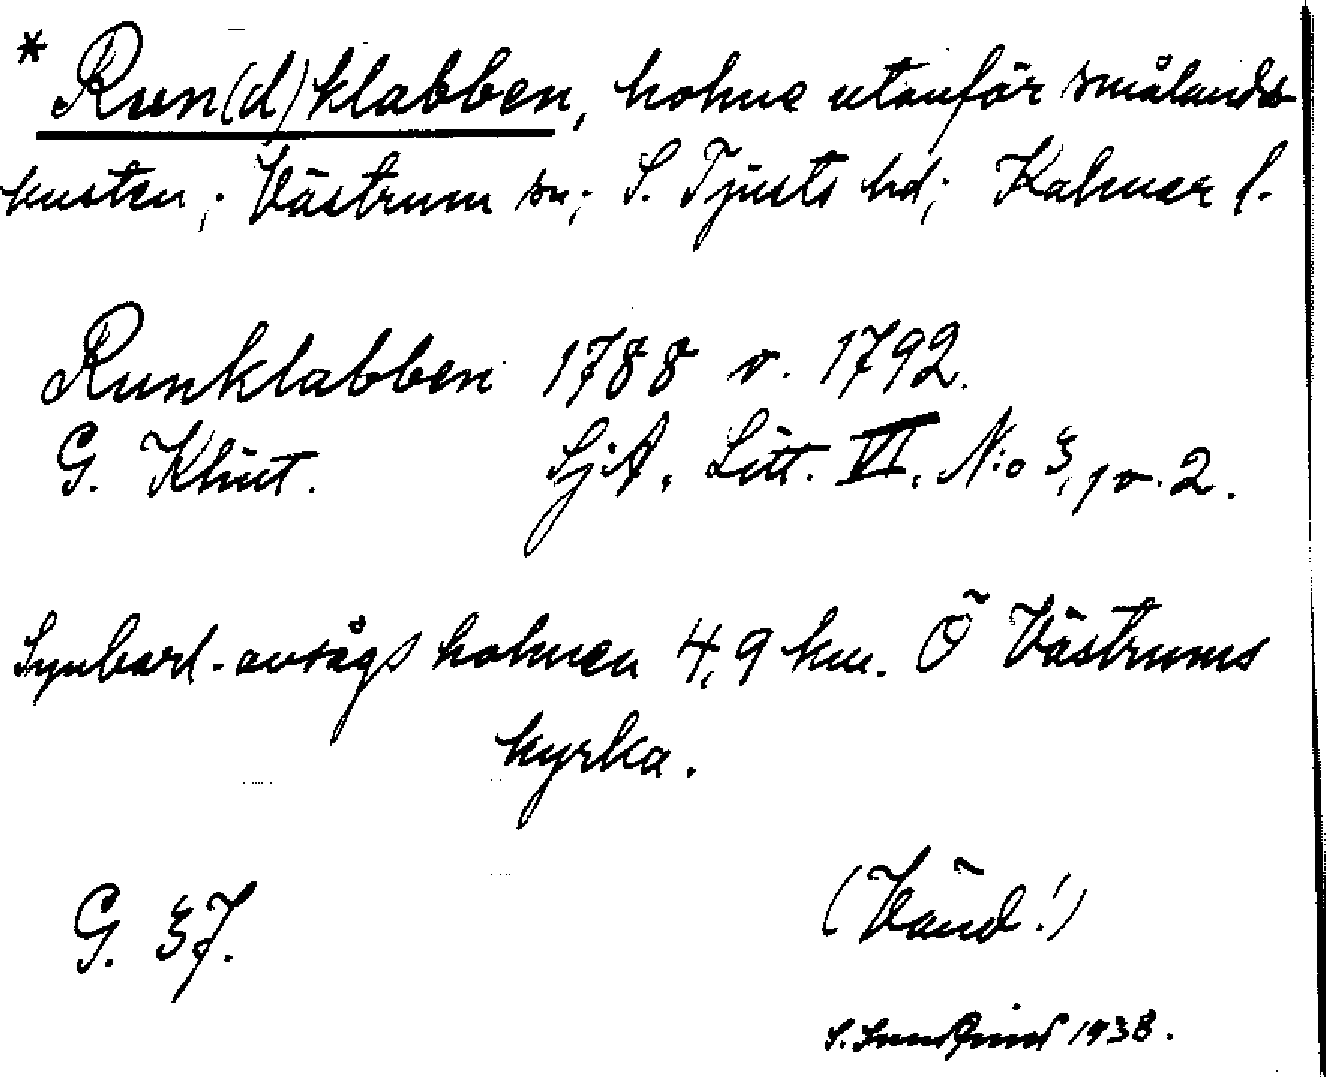 * Run(d)klabben, holme utanför smålands-
kusten; Västrum sn; S. Tjusts hd; Kalmar l.
Runklabben 1788 o. 1792.
G. Klint. SjA. Litt. VI. N:o 3, 1 o. 2.
Synbarl. avsågs holmen 4,9 km. Ö Västrums
kyrka.
G. 37.
(Vänd!)
S. 1938.